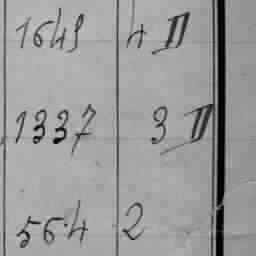 1649 4 II
1337 3 II
564 2